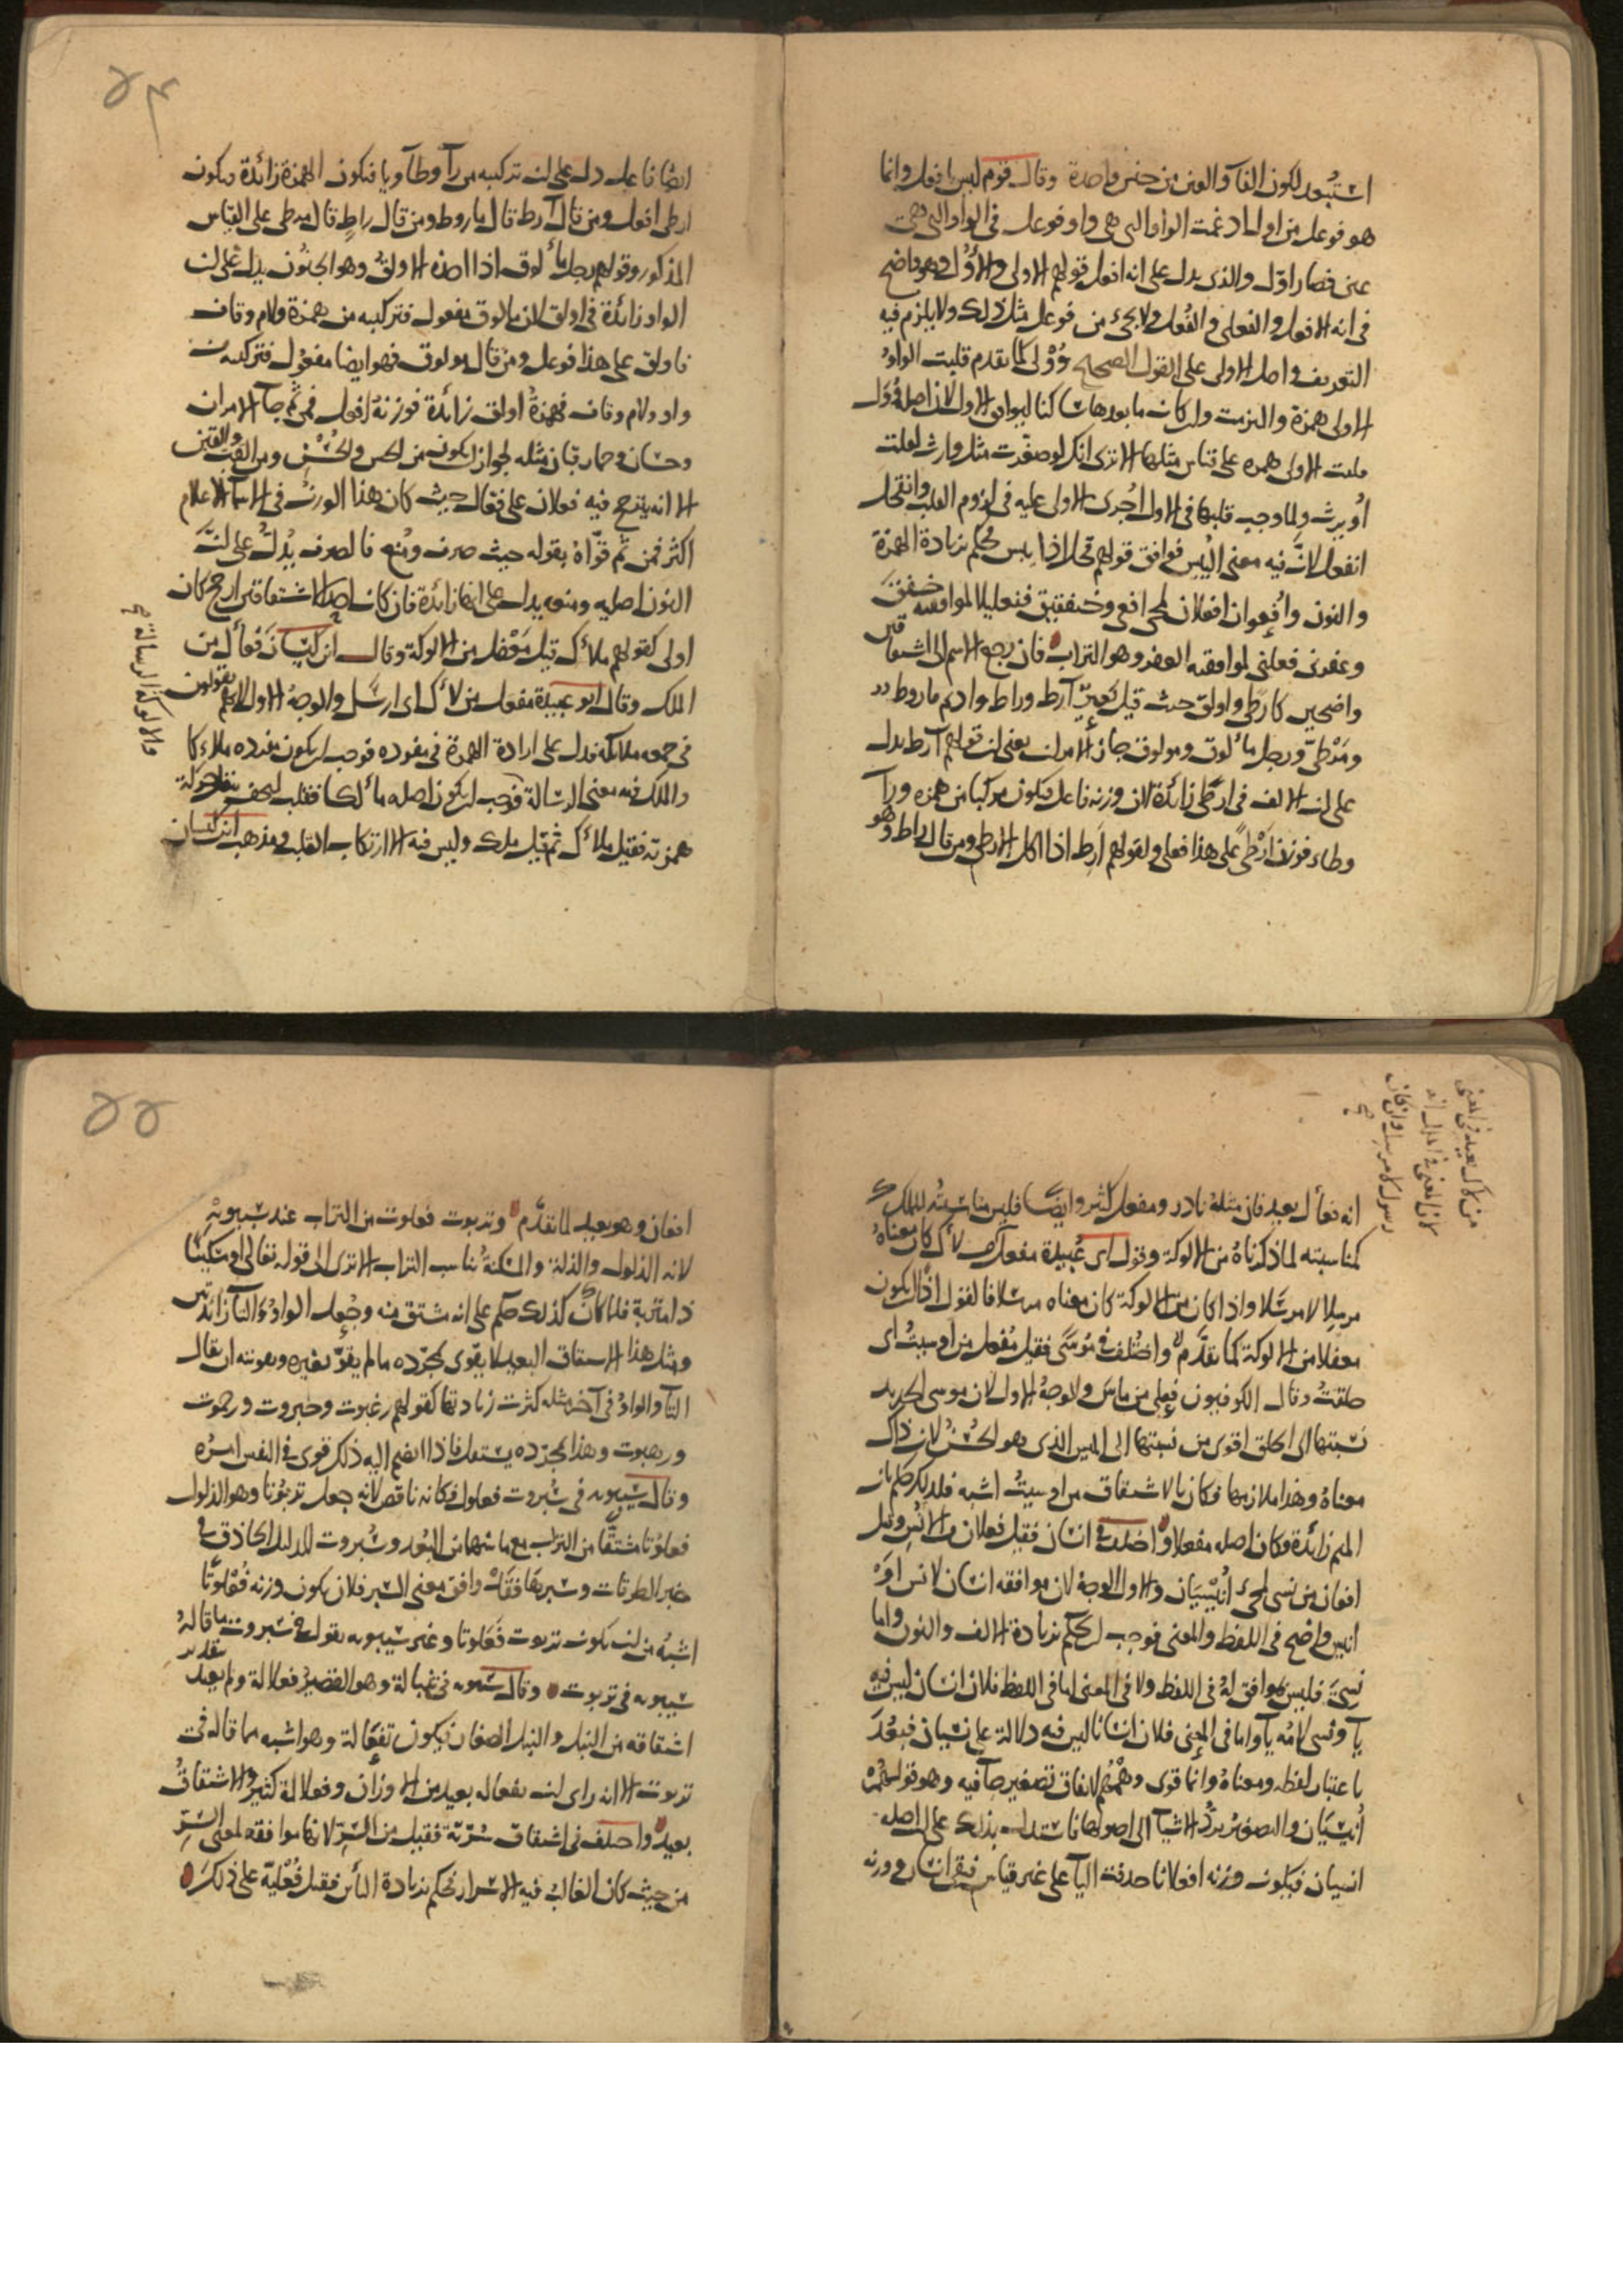 استبعد لكون الفآ والعين من جنس واحدة وقال قوم ليس بافعل وانما
هو فوعل من اول ادغمت الواو التي هي واو فوعل في الواو التي هي
عين فصار اوّل والذي يدل على انه افعل قولهم الاولى والأُوَل وهو واضح
في انه الافعل والفعلى والفُعَل ولا يجئ من فوعل مثل ذلك ولا يلزم فيه
التعريف واصل الاولى على القول الصحيح وُوْلى كما تقدم قلبت الواو
الاولى همزة والتزمت وان كان ما بعدها ساكنا ليوافق الاول لان اصله وُوَل
قلبت الاولى همزه على قياس مثلها الا ترى انك لو صغّرت مثل وارث لقلت
أُويرث ولما وجب قلبها في الاول اُجرى الاولى عليه في لزوم القلب وانقحل
انفعل لانّ فيه معنى اليُبس فوافق قولهم قحل اذا يبس فحكم بزيادة الهمزة
والنون وأُفعوان افعلان لمجئ افعى وخنفقيق فنعليلا لموافقته خفق
وعفرنى فعلنى لموافقته العفر وهو التراب فان رجع الاسم الى اشتقاقين
واضحين كارطى واولق حيث قيل بعير آرط وراط واديم ماروط
ومَرْطىّ ورجل مألوق ومولوق جاز الامران يعني ان قولهم آرط يدل
على ان الالف في ارطى زائدة لان وزنه فاعل فيكون مركبا من همزه ورآ
وطاء فوزن أَرْطًى على هذا فعلى ولقولهم أَرِط اذا اكل الارطى ومن قال راط وهو
ايضا فاعل دل على ان تركيبه من رآ وطآ ويا فتكون الهمزة زائدة ويكون
ارطى افعل ومن قال آرط قال ماروط ومن قال راطٍ قال مرطى على القياس
المذكور وقولهم رجل مألوق اذا اخذه الاولق وهو الجنون يدل على ان
الواو زائدة في اولق لان مالوق مفعول فتركيبه من همزة ولام وقاف
فاولق على هذا فوعل ومن قال مولوق فهو ايضا مفعول فتركيبه من
واو ولام وقاف فهمزة اولق زائدة فوزنه افعل فمن ثم جآ الامران
وحسان وحمار قبان مثله لجواز ان يكون من الحس والحُسْن ومن القبّ والقبن
الا انه يترجح فيه فعلان على فعّال حيث كان هذا الوزن في الاسمآ الاعلام
اكثر فمن ثم قوّاه بقوله حيث صرف ومُنع فالصرف يدلّ على انّ
النون اصليه ومنعه يدل على انها زائدة فان كان احد الاشتقاقين ارجح كان
اولى كقولهم ملأك قيل مَعْفل من الالوكة وقال ابن كيسان فَعْأل من
الملك وقال ابو عبيدة مفعل من لأك اى ارسل والوجه الاول لانهم يقولون
في جمعه ملائكه فدل على ارادة الهمزة في مفرده فوجب ان يكون مفرده ملاءكا
والملك فيه معنى الرسالة فوجب ان يكون اصله مألكا فقلب ليخف بنقل حركة
همزته فقيل ملائك ثم قيل ملك وليس فيه الا ارتكاب القلب ومذهب ابن كيسان
والالوكة الرسالة صح
٥٤
انه فعأل بعيد فان مثله نادر ومفعل كثير وايضا فليس مناسبته للملك
كمناسبته لما ذكرناه من الالوكة وقول ابى عُبيدة مفعل من لأك كان معناه
مرسِلا لا مرسَلا واذا كان من الالوكة كان معناه مرسلا فالقول اذًا ان يكون
معفلا من الالوكة كما تقدّم واختُلف في مُوسًى فقيل مُفعل من اوسيتُ اى
حلقتُ وقال الكوفيون فِعلى من ماس والوجه الاول لان موسى الحديد
نسبتها الى الحلق اقوى من نسبتها الى الميس الذى هو الحسن لان ذاك
معناه وهذا ملازمها فكان بالاشتقاق من اوسيتُ اشبه فلذلك حكم بان
الميم زائدة فكان اصله مفعلا واختلف في انسان فقيل فعلان من الانس وقيل
افعان من نسى لمجئ أُنَيْسِيَان والاول الوجه لان موافقه انسان لانس او
انس واضح في اللفظ والمعنى فوجب ان يحكم بزيادة الالف والنون واما
نسى فليس بموافق له في اللفظ ولا في المعنى اما في اللفظ فلان انسان ليس فيه
يآ ونسى لامُه يآ واما في المعنى فلان انسانا ليس فيه دلالة على نسيان فبَعُدَ
باعتبار لفظه ومعناه وانما قوى وهْمُهم لاتفاق تصغير جآ فيه وهو قولهم
أُنيسيَان والتصغير يردّ الاشيآ الى اصولها فاستدل بذلك على ان اصله
انسيان فيكون وزنه افعلانا حذفت اليآ على غير قياس فبقى انسان ووزنه
افعان وهو بعيد لما تقدّم وتربوت فعلوت من التراب عند سيبويهْ
لانه الذلول والذلة والمسكنة يناسب التراب الا ترى الى قوله تعالى او مسكينًا
ذا متربة فلما كان كذلك حكم على انه مشتق منه وجُعلت الواو والتآ زائدتين
ومثل هذا الاشتقاق البعيد لا يقوى بمجرّده ما لم يقوّ بغيره وتقويته ان يقال
التآ والواو في آخر مثله كثرت زيادتها كقولهم رغبوت وجبروت ورحموت
ورهبوت وهذا بمجرّده يستقل فاذا انضم اليه ذلك قوى في النفس امرُه
وقال سيبويه في سُبروت فعلول فكانه ناقض لانه جعل تربوتا وهو الذلول
فعلوتًا مشتقّا من التراب مع ما بينهما من البُعد وسُبروت الدليل الحاذق في
خبر الطرقات وسبرها فقد وافق معنى السبر فلان يكون وزنه فُعْلوتًا
اشبه من ان يكون تربوت فَعَلوتا وغير سيبويه يقول في سبروت ما قاله
سيبويه في تربوت وقال سيبويه في تنبالة وهو القصير فعلالة ولم يعد
اشتقاقه من النبل والنبل الصغار فيكون تِفعالة وهو اشبه مما قاله في
تربوت الا انه راى ان تفعاله بعيد من الاوزان وفعلالة كثير والاشتقاقُ
بعيد واختلف في اشتقاق سُرّيّة فقيل من السّرّ لانها موافقه لمعنى السِّرّ
من حيث كان الغالب فيه الاسرار فحكم بزيادة اليائين فقيل فُعْلِيّة على ذلك
٥٥